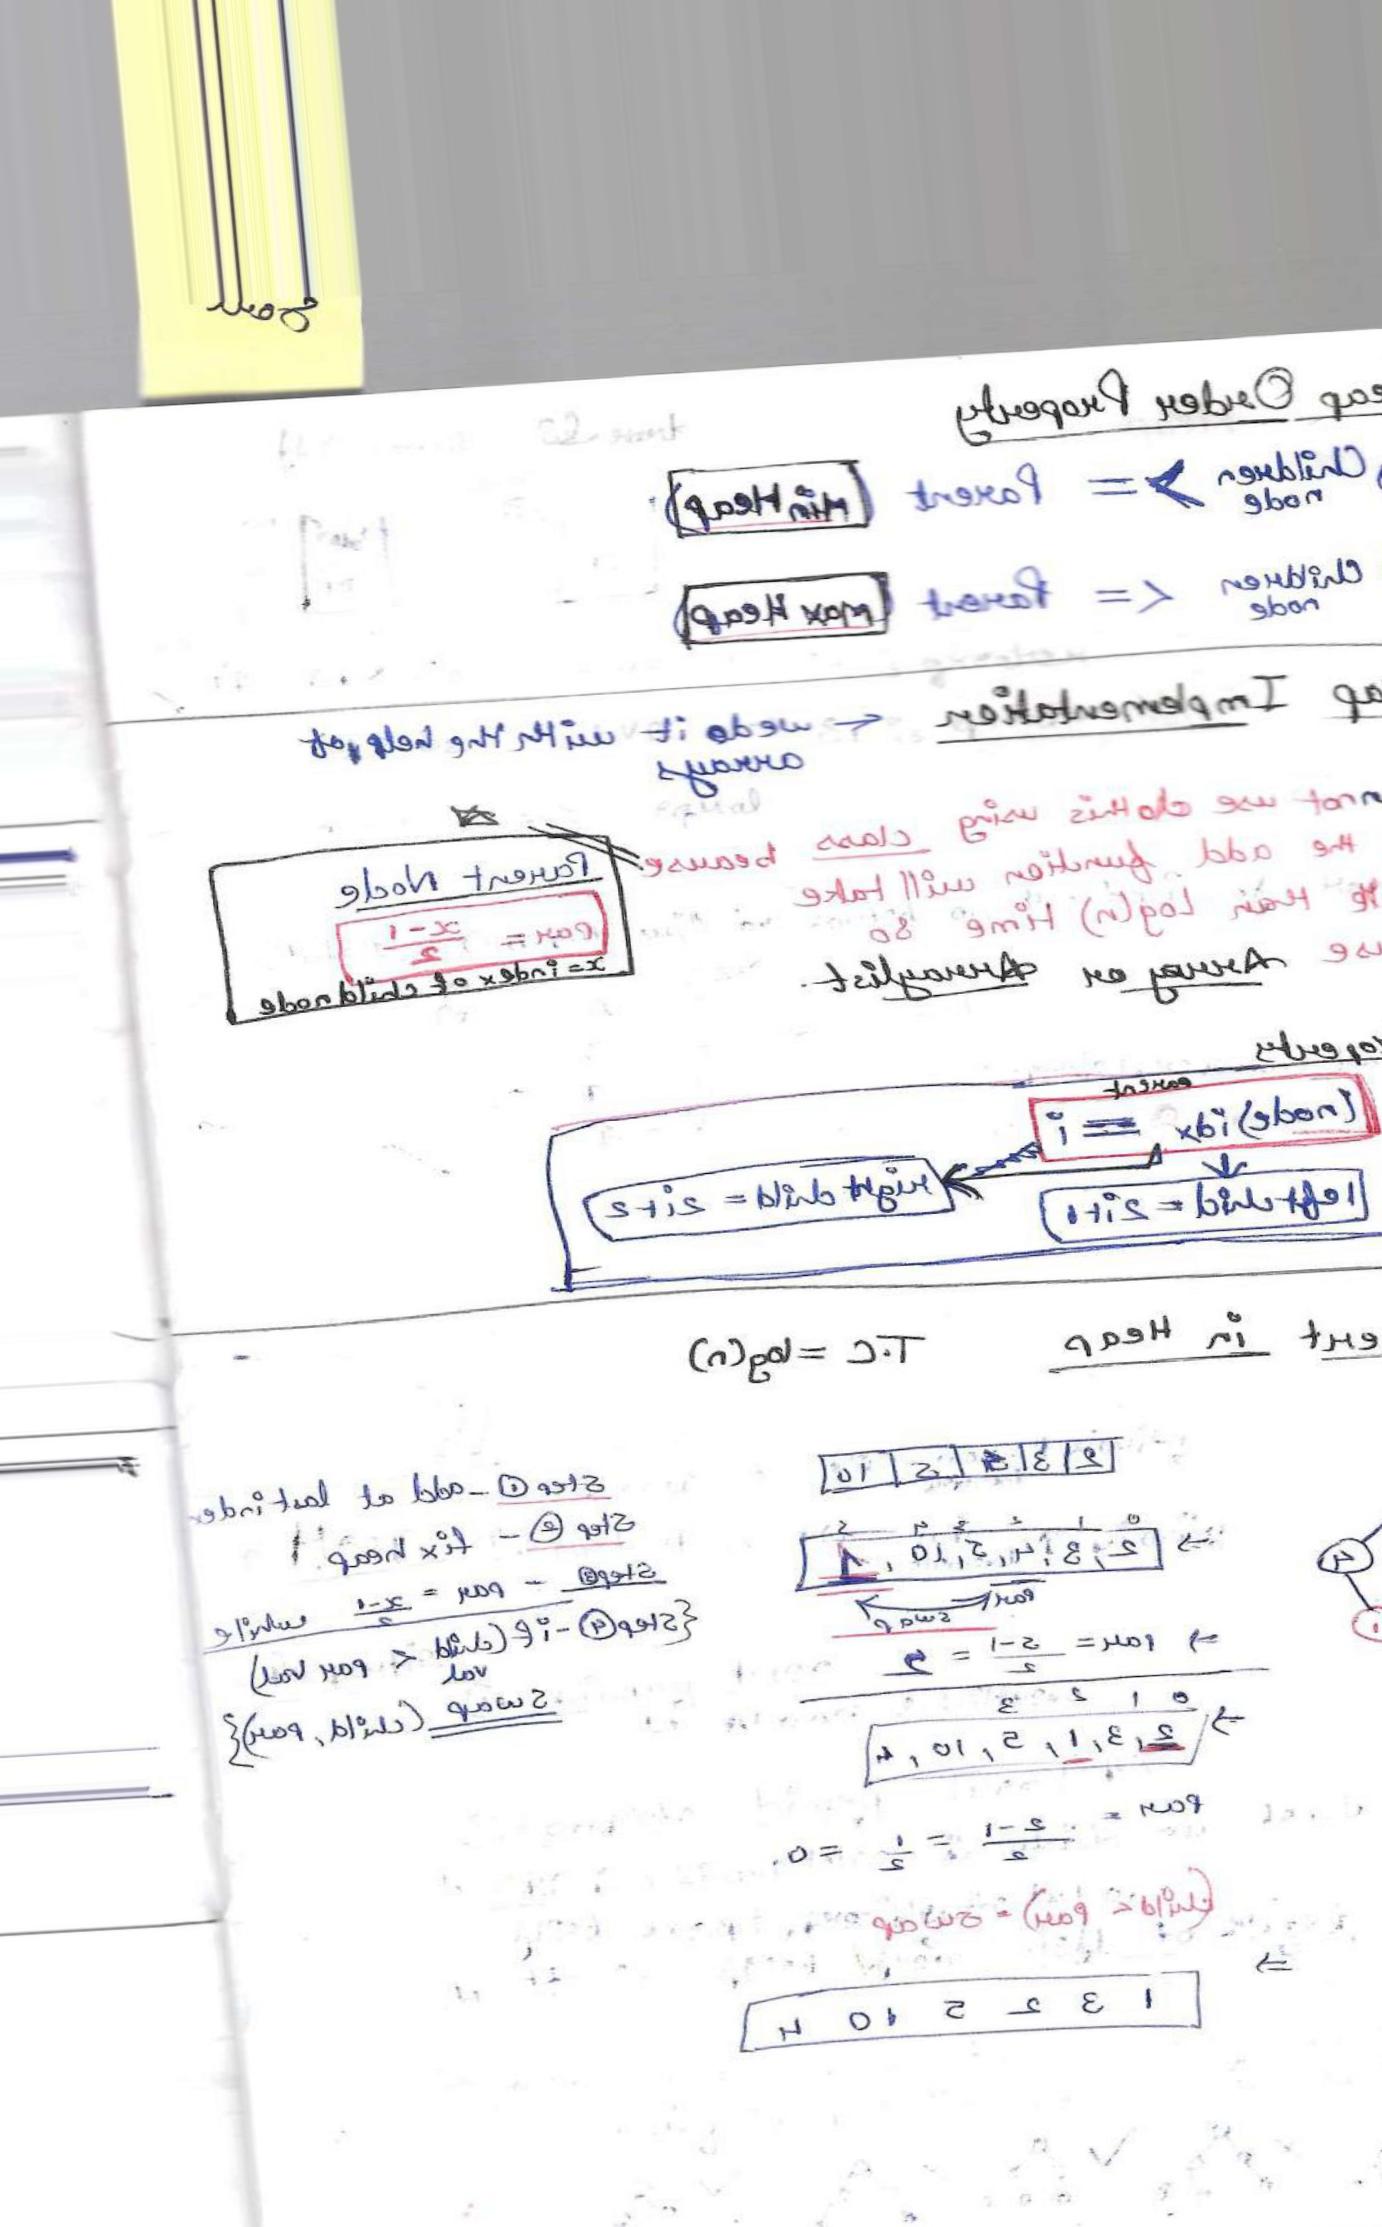 eap Order Property
Children node >= Parent (Min Heap)
Children node <= Parent (max Heap)
ap Implementation → we do it with the help of
arrays
nnot use do this using class because
the add function will take
than Log(n) time so
use Array or Arraylist.
Parent Node
Par = x-1/2
x = index of child node
operty
parent
(node) idx = i
left child = 2i+1
right child = 2i+2
ert in Heap T.C = log(n)
2 | 3 | 4 | 5 | 10
0 1 2 3 4 5
→ 2, 3, 4, 5, 10, 1
par
swap
⇒ par = 5-1/2 = 2
0 1 2 3
→ 2, 3, 1, 5, 10, 4
par = 2-1/2 = 1/2 = 0.
(child < par) = swap
⇒ 1 3 2 5 10 4
Step ① - add at last index
Step ② - fix heap
Step ③ - par = x-1/2 while
{Step ④ - if (child val < par val)
swap (child, par)}
4
1